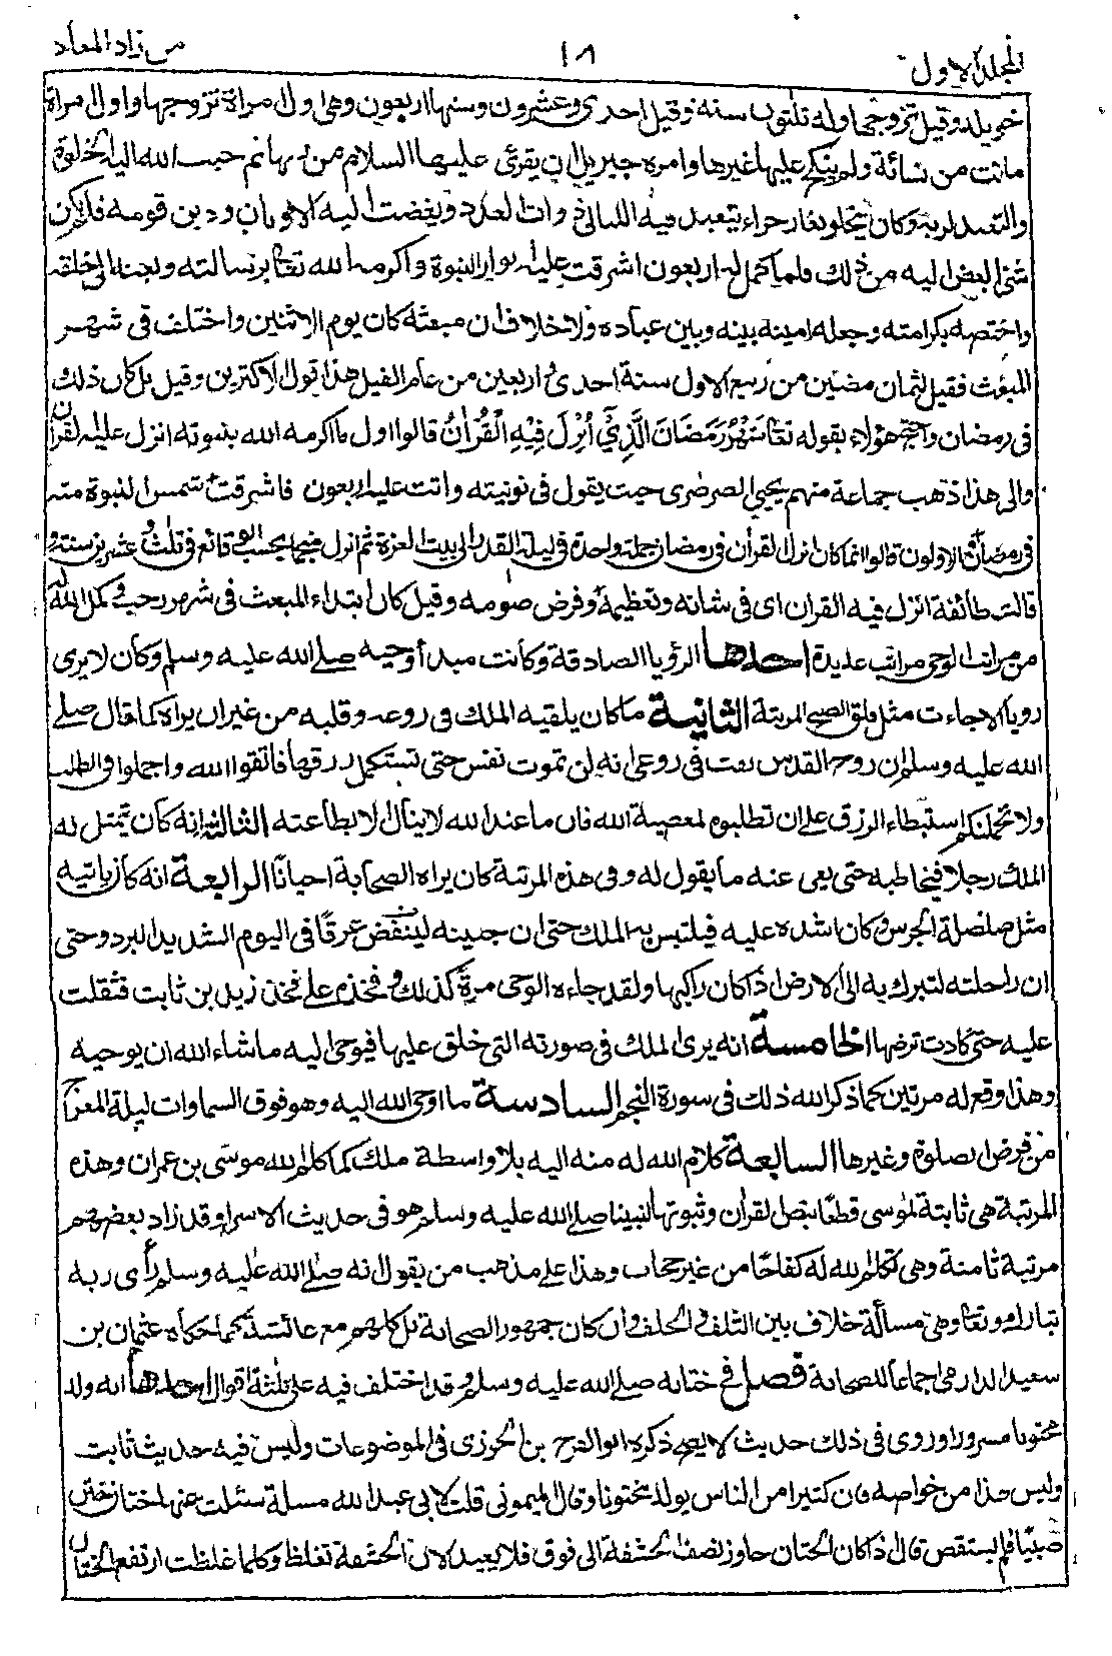 المجلد الاول ١٨ من زاد المعاد
خويلد وقيل تزوجها وله ثلثون سنة وقيل احدى وعشرون وسنها اربعون وهى اول امراة تزوجها واول امراة
ماتت من نسائه ولم ينكح عليها غيرها وامره جبريل ان يقرئ عليها السلام من ربها ثم حبب الله اليه الخلوة
والتعبد لربه وكان يخلو بغار حراء يتعبد فيه الليالى ذوات العدد وبغضت اليه الاوثان ودين قومه فلم يكن
شئ ابغض اليه من ذلك فلما كمل له اربعون اشرقت عليه انوار النبوة واكرمه الله تعالى برسالته وبعثه الى خلقه
واختصه بكرامته وجعله امينه بينه وبين عباده ولا خلاف ان مبعثه كان يوم الاثنين واختلف فى شهر
المبعث فقيل لثمان مضين من ربيع الاول سنة احدى واربعين من عام الفيل هذا قول الاكثرين وقيل بل كان ذلك
فى رمضان واحتج هؤلاء بقوله تعالى شَهْرُ رَمَضَانَ الَّذِيْ اُنْزِلَ فِيْهِ الْقُرْاٰنُ قالوا اول ما اكرمه الله بنبوته انزل عليه القران
والى هذا ذهب جماعة منهم يحيى الصرصرى حيث يقول فى نونيته واتت عليه اربعون فاشرقت شمس النبوة منه
فى رمضان والاولون قالوا انما كان انزال القرأن فى رمضان جملة واحدة فى ليلة القدر الى بيت العزة ثم انزل منجما بحسب الوقائع فى ثلث وعشرين سنة و
قالت طائفة انزل فيه القران اى فى شانه وتعظيمه وفرض صومه وقيل كان ابتداء المبعث فى شهر رجب وكمل الله له
من مراتب الوحى مراتب عديدة احدها الرؤيا الصادقة وكانت مبدأ وحيه صلى الله عليه وسلم وكان لا يرى
رويا الا جاءت مثل فلق الصبح المرتبة الثانية ما كان يلقيه الملك فى روعه وقلبه من غير ان يراه كما قال صلى
الله عليه وسلم ان روح القدس نفث فى روعى انه لن تموت نفس حتى تستكمل رزقها فاتقوا الله واجملوا فى الطلب
ولا يحملنكم استبطاء الرزق على ان تطلبوه لمعصية الله فان ما عند الله لا ينال الا بطاعته الثالثة انه كان يتمثل له
الملك رجلا فيخاطبه حتى يعى عنه ما يقول له وفى هذه المرتبة كان يراه الصحابة احيانًا الرابعة انه كان ياتيه
مثل صلصلة الجرس وكان اشده عليه فيلتبس به الملك حتى ان جبينه ليتفض عرقًا فى اليوم الشديد البرد وحتى
ان راحلته لتبرك به الى الارض اذا كان راكبها ولقد جاءه الوحى مرة كذلك وفخذه على فخذ زيد بن ثابت فثقلت
عليه حتى كادت ترضها الخامسة انه يرى الملك فى صورته التى خلق عليها فيوحى اليه ما شاء الله ان يوحيه
وهذا وقع له مرتين كما ذكر الله ذلك فى سورة النجم السادسة ما اوحى الله اليه وهو فوق السماوات ليلة المعراج
من فرض الصلوة وغيرها السابعة كلام الله له منه اليه بلا واسطة ملك كما كلم الله موسى بن عمران وهذه
المرتبة هى ثابتة لموسى قطعًا بنص القرأن وثبوتها لنبينا صلى الله عليه وسلم هو فى حديث الاسراء وقد زاد بعضهم
مرتبة ثامنة وهى تكلم الله له كفاحًا من غير حجاب وهذا على مذهب من يقول انه صلى الله عليه وسلم رأى ربه
تبارك وتعالى وهى مسألة خلاف بين السلف والخلف وان كان جمهور الصحابة بل كلهم مع عائشة كما حكاه عثمان بن
سعيد الدارمى اجماعا للصحابة فصل فى ختانه صلى الله عليه وسلم وقد اختلف فيه على ثلثة اقوال احدها انه ولد
مختونا مسرورا وروى فى ذلك حديث لا يصح ذكره ابو الفرج بن الجوزى فى الموضوعات وليس فيه حديث ثابت
وليس هذا من خواصه فان كثيرا من الناس يولد مختونا وقال الميمونى قلت لابى عبد الله مسلة سئلت عنها ختان ختن
صبيًا فلم يستقص قال اذا كان الختان جاوز نصف الحشفة الى فوق فلا يعيد لان الحشفة تغلظ وكلما غلظت ارتفع الختان